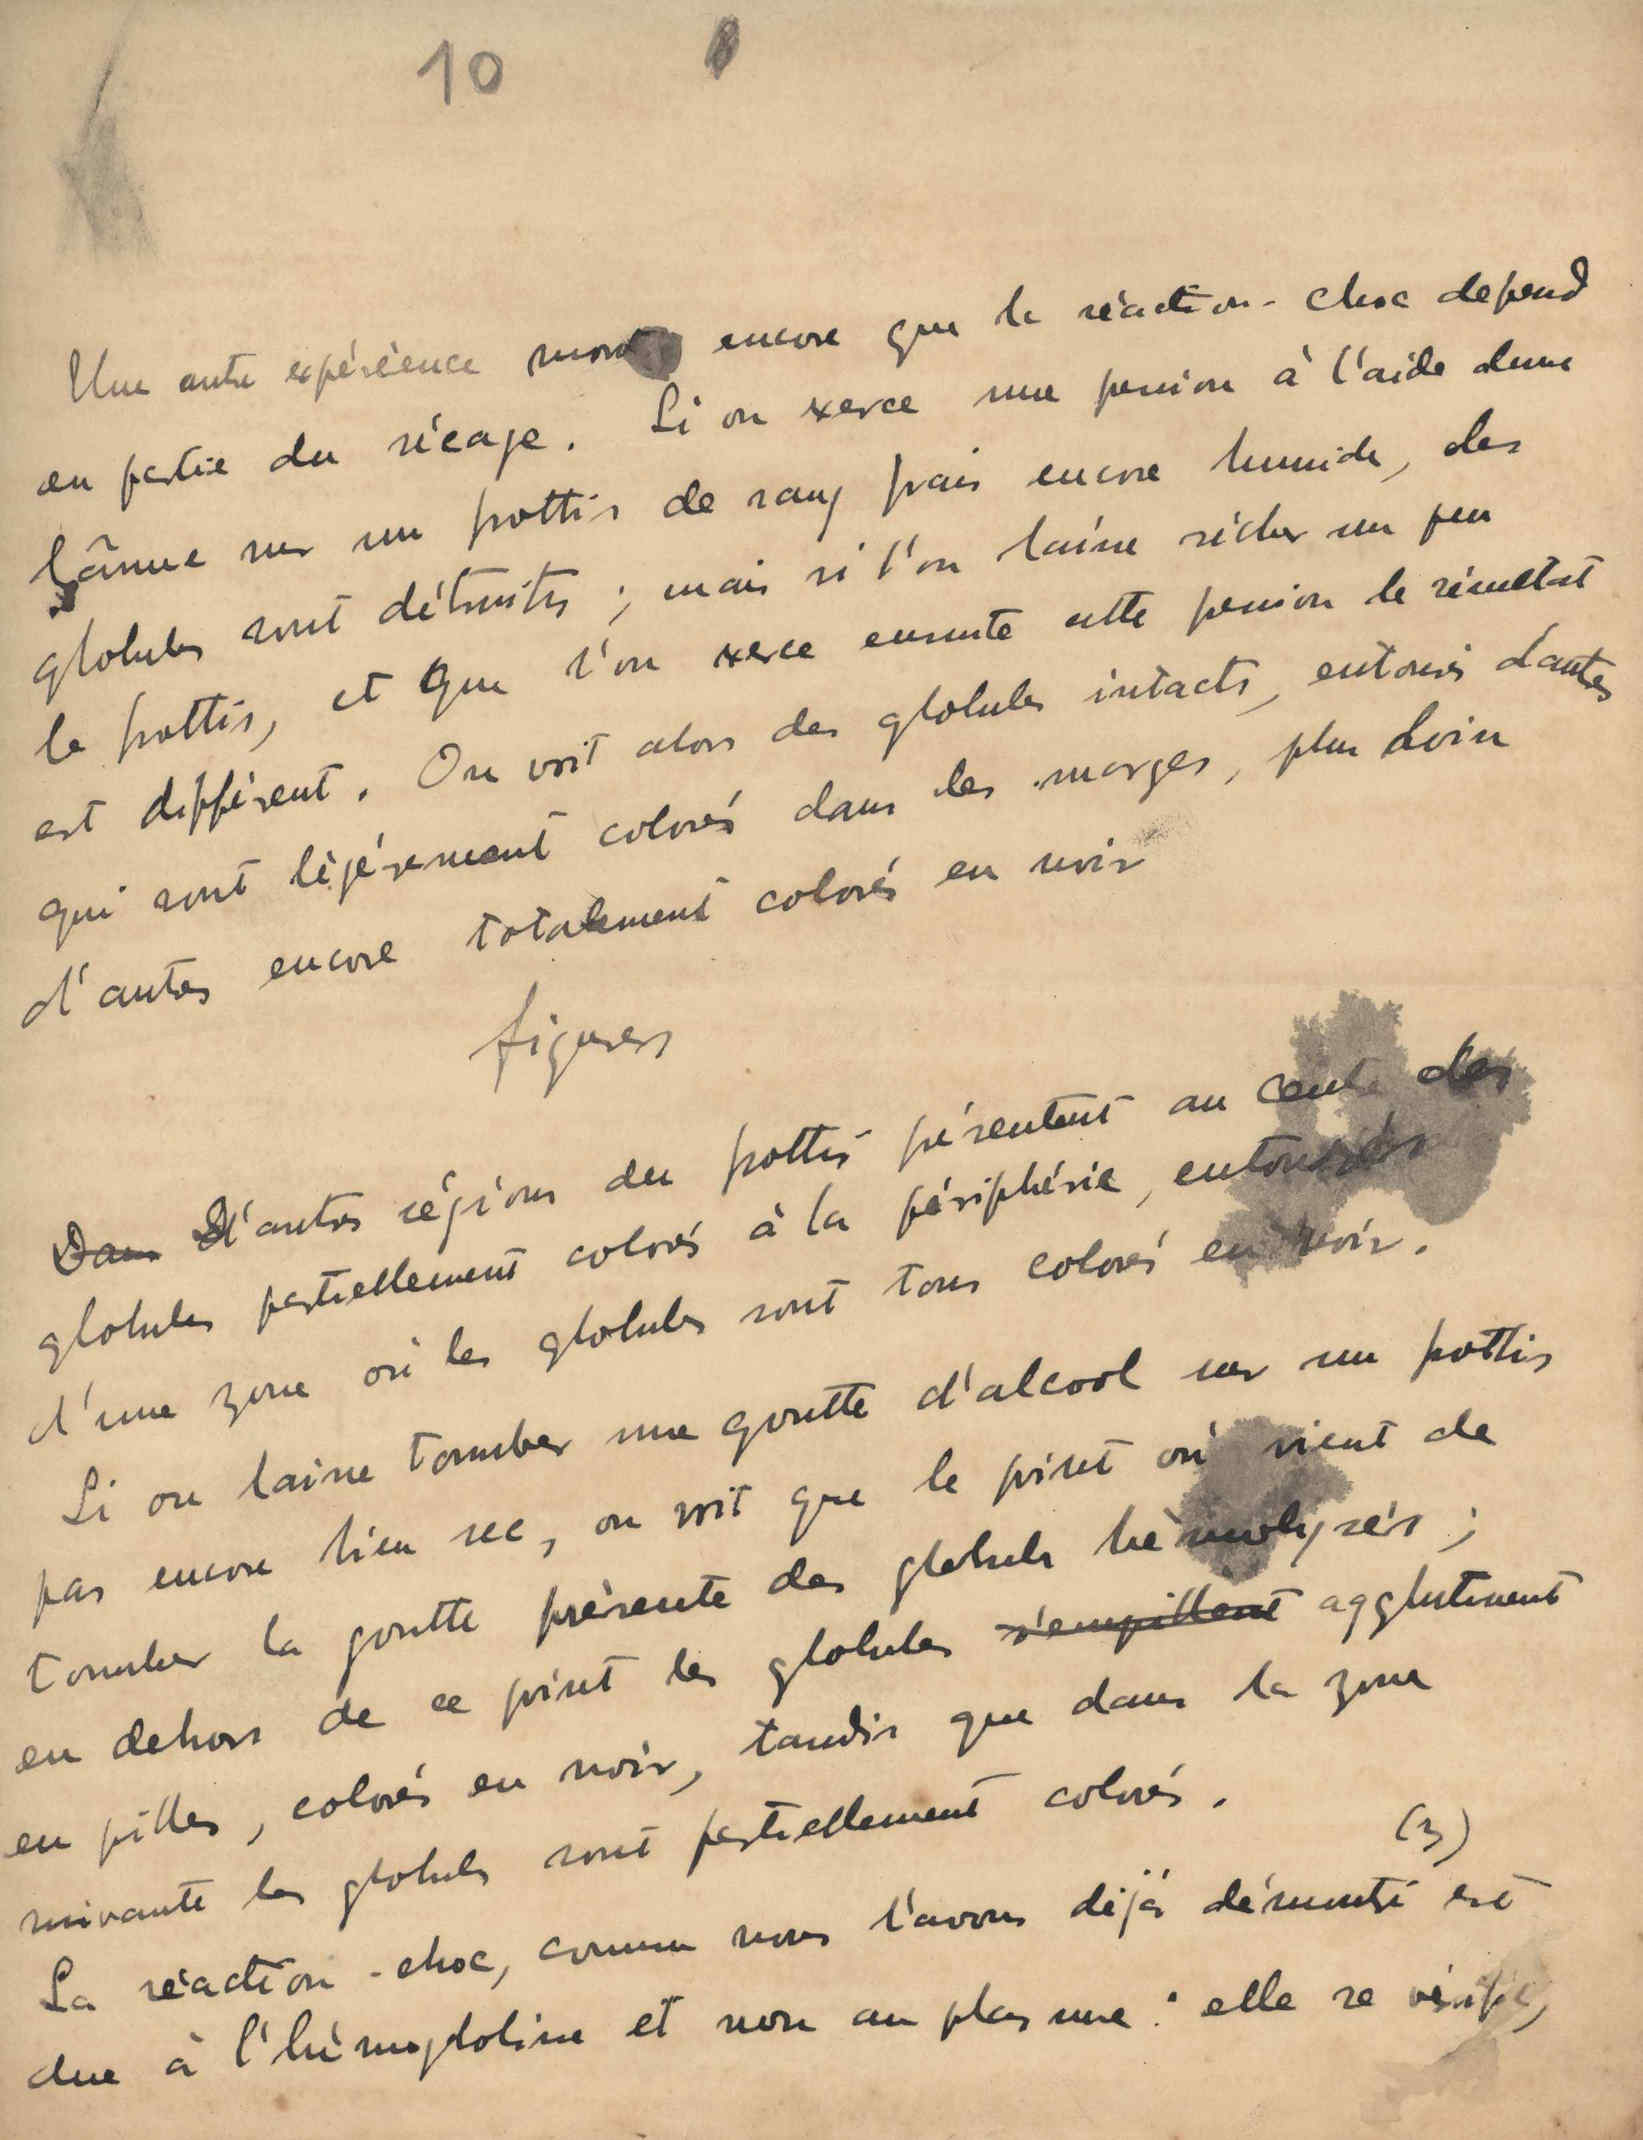 10
Une autre expérience mont encore que la réaction-choc depend
en partie du sécage. Si on exerce une pression à l'aide d'une
lâmme sur un frottis de sang frais encore humide, des
globules sont détruits ; mais si l'on laisse sécher un peu
le frottis, et que l'on exerce ensuite cette pression le résultat
est différent. On voit alors des globules intacts, entourés d'autres
qui sont légérement colorés dans les marges, plus loin
d'autres encore totalement colorés en noir
figures
Dans D'autres régions du frottis présentent au cent des
globules partiellement colorés à la périphérie, entourés
d'une zone où les globules sont tous colorés en noir.
Si on laisse tomber une goutte d'alcool sur un frottis
pas encore bien sec, on voit que le point où vient de
tomber la goutte présente des globules hémolysés ;
en dehors de ce point les globules s'empillent agglutinent
en pilles, colorés en noir, tandis que dans la zone
suivante les globules sont partiellement colorés.
(3)
La réaction-choc, comme nous l'avons déjà démontré est
due à l'hémogloline et non au plasme : elle se vérifie,